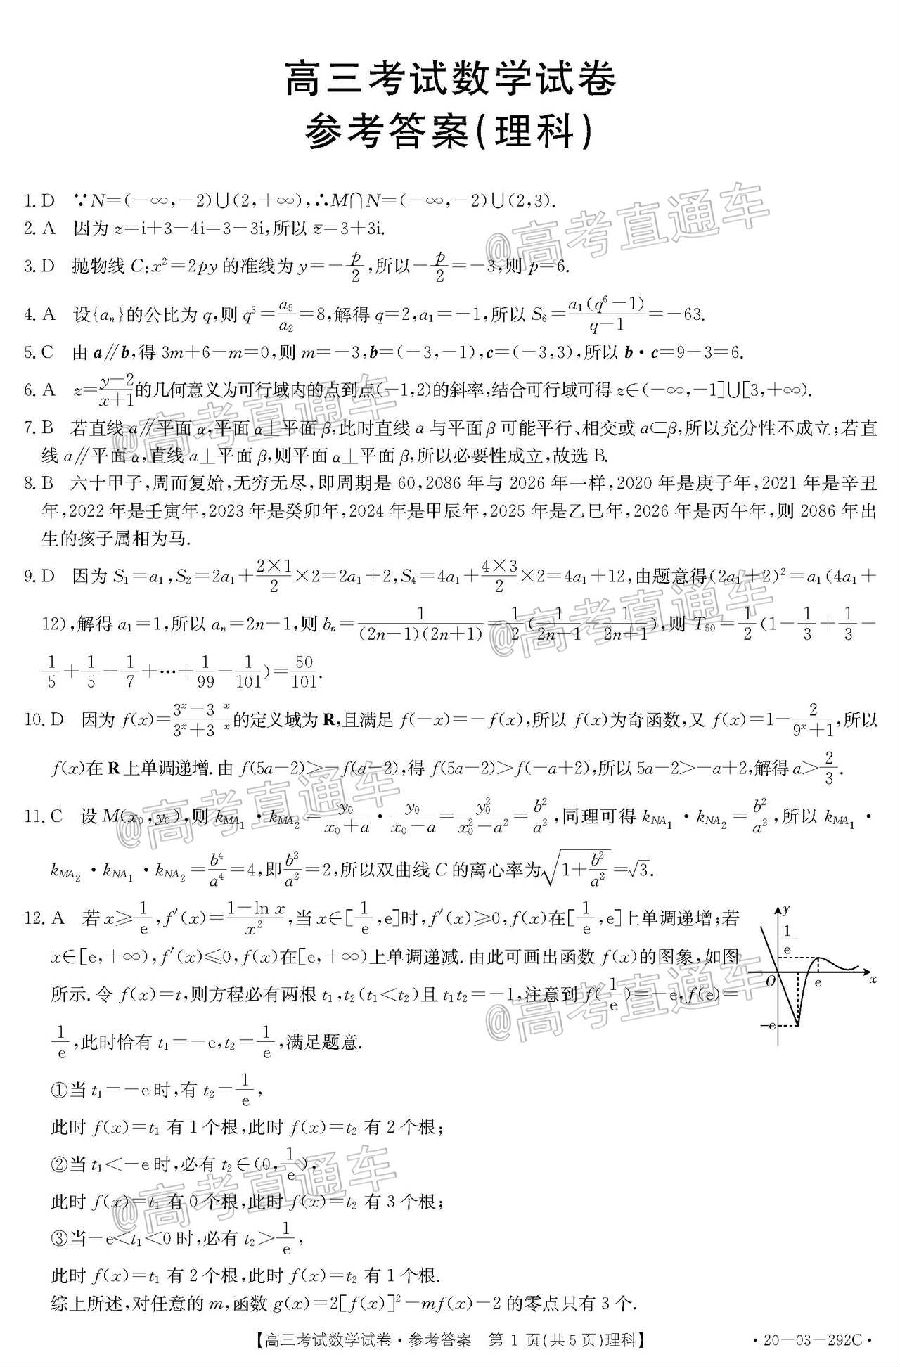 高三考试数学试卷
参考答案(理科)
1. D ∵N=(-∞,-2)∪(2,+∞),∴M∩N=(-∞,-2)∪(2,3).
2. A 因为 z=i+3-4i=3-3i,所以 z̅=3+3i.
3. D 抛物线 C:x²=2py 的准线为 y=-p/2,所以-p/2=-3,则 p=6.
4. A 设{aₙ}的公比为 q,则 q³=a₅/a₂=8,解得 q=2,a₁=-1,所以 S₆=a₁(q⁶-1)/(q-1)=-63.
5. C 由 a∥b,得 3m+6-m=0,则 m=-3,b=(-3,-1),c=(-3,3),所以 b·c=9-3=6.
6. A z=(y-2)/(x+1)的几何意义为可行域内的点到点(-1,2)的斜率,结合可行域可得 z∈(-∞,-1]∪[3,+∞).
7. B 若直线 a∥平面 α,平面 α⊥平面 β,此时直线 a 与平面 β 可能平行、相交或 a⊂β,所以充分性不成立;若直
线 a∥平面 α,直线 a⊥平面 β,则平面 α⊥平面 β,所以必要性成立,故选 B.
8. B 六十甲子,周而复始,无穷无尽,即周期是 60,2086 年与 2026 年一样,2020 年是庚子年,2021 年是辛丑
年,2022 年是壬寅年,2023 年是癸卯年,2024 年是甲辰年,2025 年是乙巳年,2026 年是丙午年,则 2086 年出
生的孩子属相为马.
9. D 因为 S₁=a₁,S₂=2a₁+(2×1)/2×2=2a₁+2,S₄=4a₁+(4×3)/2×2=4a₁+12,由题意得(2a₁+2)²=a₁(4a₁+
12),解得 a₁=1,所以 aₙ=2n-1,则 bₙ=1/((2n-1)(2n+1))=1/2(1/(2n-1)-1/(2n+1)),则 T₅₀=1/2(1-1/3+1/3-
1/5+1/5-1/7+⋯+1/99-1/101)=50/101.
10. D 因为 f(x)=(3ˣ-3⁻ˣ)/(3ˣ+3⁻ˣ)的定义域为 R,且满足 f(-x)=-f(x),所以 f(x)为奇函数,又 f(x)=1-2/(9ˣ+1),所以
f(x)在 R 上单调递增.由 f(5a-2)>-f(a-2),得 f(5a-2)>f(-a+2),所以 5a-2>-a+2,解得 a>2/3.
11. C 设 M(x₀,y₀),则 k_{MA₁}·k_{MA₂}=y₀/(x₀+a)·y₀/(x₀-a)=y₀²/(x₀²-a²)=b²/a²,同理可得 k_{NA₁}·k_{NA₂}=b²/a²,所以 k_{MA₁}·
k_{MA₂}·k_{NA₁}·k_{NA₂}=b⁴/a⁴=4,即 b²/a²=2,所以双曲线 C 的离心率为√(1+b²/a²)=√3.
12. A 若 x≥1/e,f′(x)=(1-ln x)/x²,当 x∈[1/e,e]时,f′(x)≥0,f(x)在[1/e,e]上单调递增;若
x∈[e,+∞),f′(x)≤0,f(x)在[e,+∞)上单调递减.由此可画出函数 f(x)的图象,如图
所示.令 f(x)=t,则方程必有两根 t₁,t₂(t₁<t₂)且 t₁t₂=-1,注意到 f(1/e)=-e,f(e)=
1/e,此时恰有 t₁=-e,t₂=1/e,满足题意.
①当 t₁=-e 时,有 t₂=1/e,
此时 f(x)=t₁ 有 1 个根,此时 f(x)=t₂ 有 2 个根;
②当 t₁<-e 时,必有 t₂∈(0,1/e),
此时 f(x)=t₁ 有 0 个根,此时 f(x)=t₂ 有 3 个根;
③当-e<t₁<0 时,必有 t₂>1/e,
此时 f(x)=t₁ 有 2 个根,此时 f(x)=t₂ 有 1 个根.
综上所述,对任意的 m,函数 g(x)=2[f(x)]²-mf(x)-2 的零点只有 3 个.
y
1/e
O
e
x
-e
【高三考试数学试卷·参考答案 第 1 页(共 5 页)理科】
·20-03-292C·
@高考直通车
@高考直通车
@高考直通车
@高考直通车
@高考直通车
@高考直通车